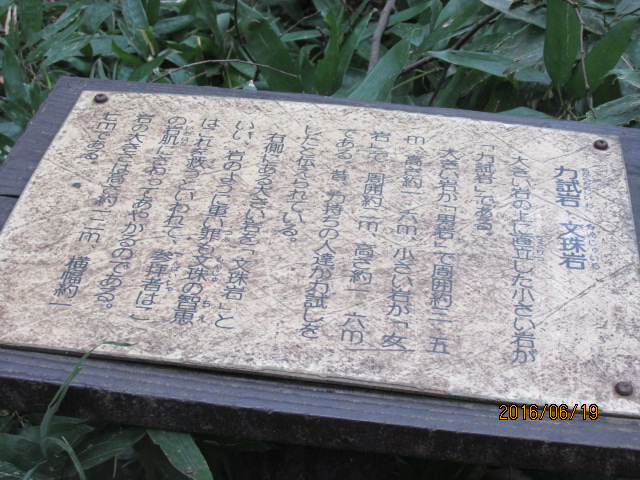 力試岩 文珠岩
大きい岩の上に直立した小さい岩が
「力試岩」である。
大きい岩が「男岩」で周囲約二・五
m、高さ約一・六m、小さい岩が「女
岩」で、周囲約一m、高さ約一・六m
である。昔、力持ちの人達が力試しを
したと伝えられている。
右側にある大きい岩を「文珠岩」と
いい、岩のように重い罪も文珠の智恵
はこれを救うといわれて、参拝者はこ
の岩肌にさわってあやかるのである。
岩の大きさは高さ約二・二m、横幅約一
・七mである。
2016/06/19